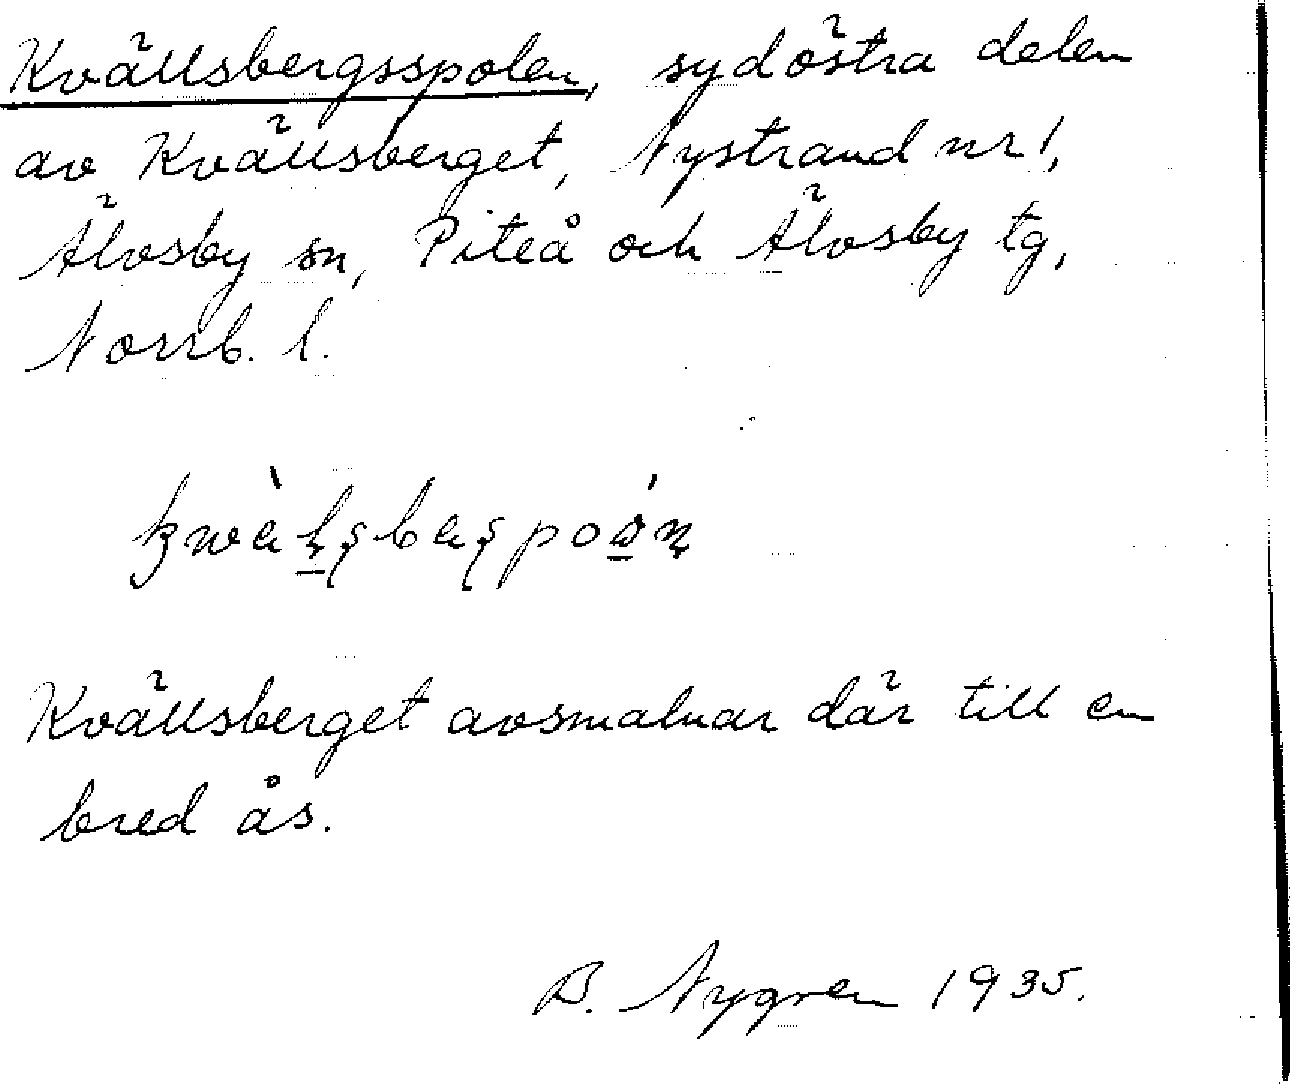 Kvällsbergsspolen, sydöstra delen
av Kvällsberget, Nystrand nr 1,
Älvsby sn, Piteå och Älvsby tg,
Norrb. l.
Kvällsberget avsmalnar där till en
bred ås.
B. Nygren 1935.